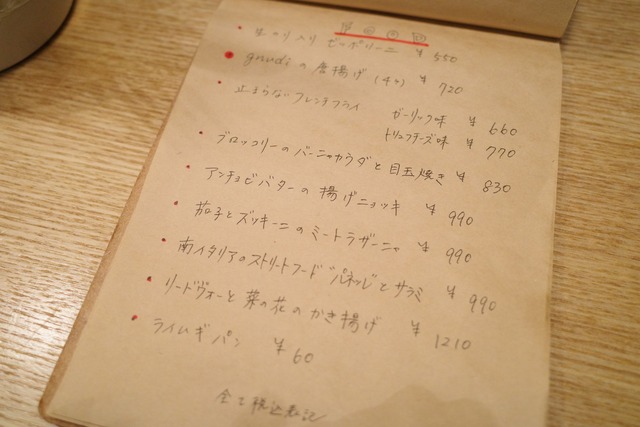 生のり入りゼッポリーニ ¥550
gnudiの唐揚げ(4ケ) ¥720
止まらないフレンチフライ ガーリック味 ¥660
トリュフチーズ味 ¥770
ブロッコリーのバーニャカウダと目玉焼き ¥830
アンチョビバターの揚げニョッキ ¥990
茄子とズッキーニのミートラザーニャ ¥990
南イタリアのストリートフード "パネッレ"とサラミ ¥990
リードヴォーと菜の花のかき揚げ ¥1210
ライムギパン ¥60
全て税込表記